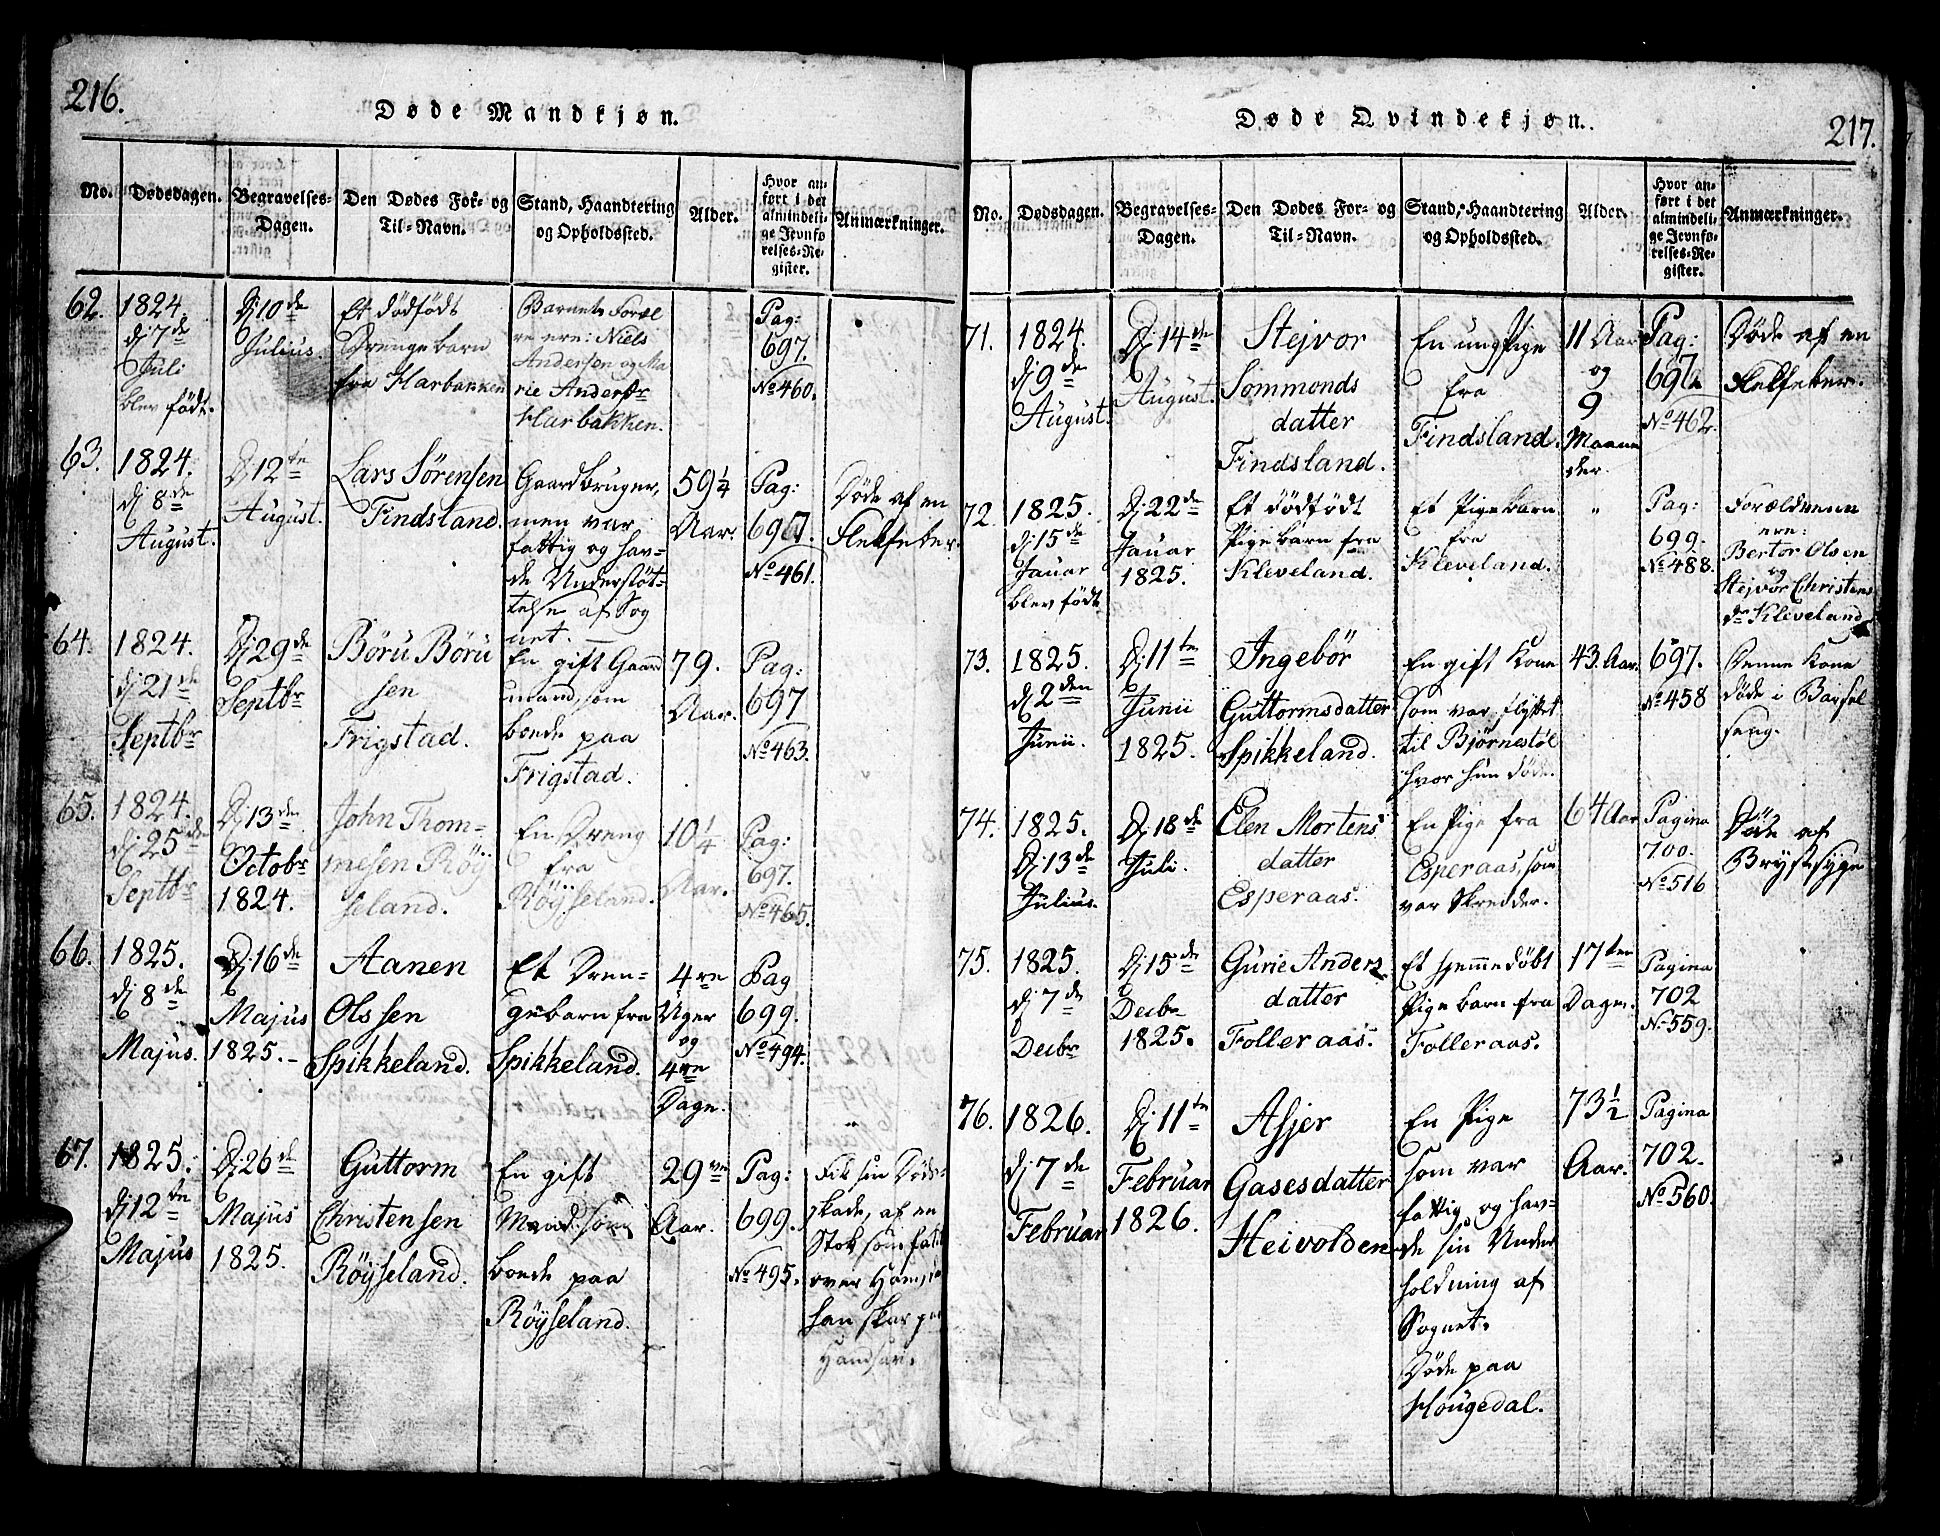 216.
Døde Mandkjøn.
No.
Dødsdagen.
Begravelses-
Dagen.
Den Dødes For- og
Til-Navn.
Stand, Haandtering
og Opholdssted.
Alder.
Hvor an-
ført i det
almindeli-
ge Jevnfø-
relses-Re-
gister.
Anmærkninger.
62.
1824.
dj 7de
Juli
blev født.
Dj 10de
Julius.
Et dødfødt
Drengebarn
fra Harbakken
Barnets Foræl
re ere: Niels
Andersen og Ma
rie Andersdr
Harbakken.
Pag:
697.
No 460.
63.
1824.
dj 8de
August.
Dj 12te
August.
Lars Sørensen
Findsland.
Gaardbruger,
men var
fattig og hav-
de Understøt-
telse af Sog
net.
59 1/4
Aar.
Pag:
697.
No 461.
Døde af en
Helfeber.
64.
1824.
dj 21de
Septbr
Dj 29de
Septbr
Børu Børu
sen
Frigstad.
En gift Gaard
mand, som
boede paa
Frigstad.
79.
Aar.
Pag:
697
No 463.
65.
1824.
dj 25de
Septbr
Dj 13de
Octobr
1824.
John Thom-
mesen Röÿ
seland.
En Dreng
fra
Röÿseland.
10 1/4
Aar.
Pag:
697.
No 465.
66.
1825.
dj 8de
Majus.
Dj 16de
Majus
1825.-
Aanen
Olssen
Spikkeland.
Et Dren-
gebarn fra
Spikkeland.
4re
Uger
og
4re
Dage.
Pag
699.
No 494.
67.
1825.
dj 12te
Majus
Dj 26de
Majus
1825.
Guttorm
Christensen
Röÿseland.
En gift
Mand som
boede paa
Röÿseland.
29
Aar.
Pag:
699.
No 495.
Fik sin Døds-
skade, af en
Stok som faldt
over Ham, da
han skar paa
Handsav.
217.
Døde Qvindekjøn.
No.
Dødsdagen.
Begravelses-
Dagen.
Den Dødes For- og
Til-Navn.
Stand, Haandtering
og Opholdssted.
Alder.
Hvor an-
ført i det
almindeli-
ge Jevnfø-
relses-Re-
gister.
Anmærkninger.
71.
1824.
dj 9de
August.
Dj 14de
August.
Stejvor
Sommonds
datter
Findsland.
En ung Pige
fra
Findsland.
11 Aar
og
9
Maane
der.
Pag:
697
No 462.
Døde af en
Helfeber.
72.
1825.
dj 15de
Januar
blev født
Dj 22de
Januar
1825.
Et dødfødt
Pigebarn fra
Kleveland.
Et Pigebarn
fra
Kleveland.
"
Pag:
699.
No 488.
Forældrenen
ere:
Bertor Olsen
og
Stejvor Christens
dr Kleveland
73.
1825.
dj 2den
Junii.
Dj 11te
Junii
1825.
Ingebör
Guttormsdatter
Spikkeland.
En gift Kone
som var flyttet
til Bjørnestøl
hvor hun døde.
43. Aar.
697.
No 458
Denne Kone
døde i Barsel
seng.
74.
1825.
Dj 13de
Julius.
Dj 18de
Juli.
Elen Mortens
datter
Esperaas.
En Pige fra
Esperaas, som
var Skredder.
64 Aar
Pagina
700.
No 516
Døde af
Brystsyge
75.
1825.
dj 7de
Decbr
Dj 15de
Decbr
1825.
Gurie Anders
datter
Folleraas.
Et hjemmedøbt
Pigebarn fra
Folleraas.
17ten
Dage.
Pagina
702
No 559.
76.
1826.
dj 7de
Februar
Dj 11te
Februar
1826.
Asjer
Gasesdatter
Heivolden
En Pige
som var
fattig og hav-
de sin Under
holdning af
Sognet.
Døde paa
Hougedal.
73 1/2
Aar.
Pagina
702.
No 560.